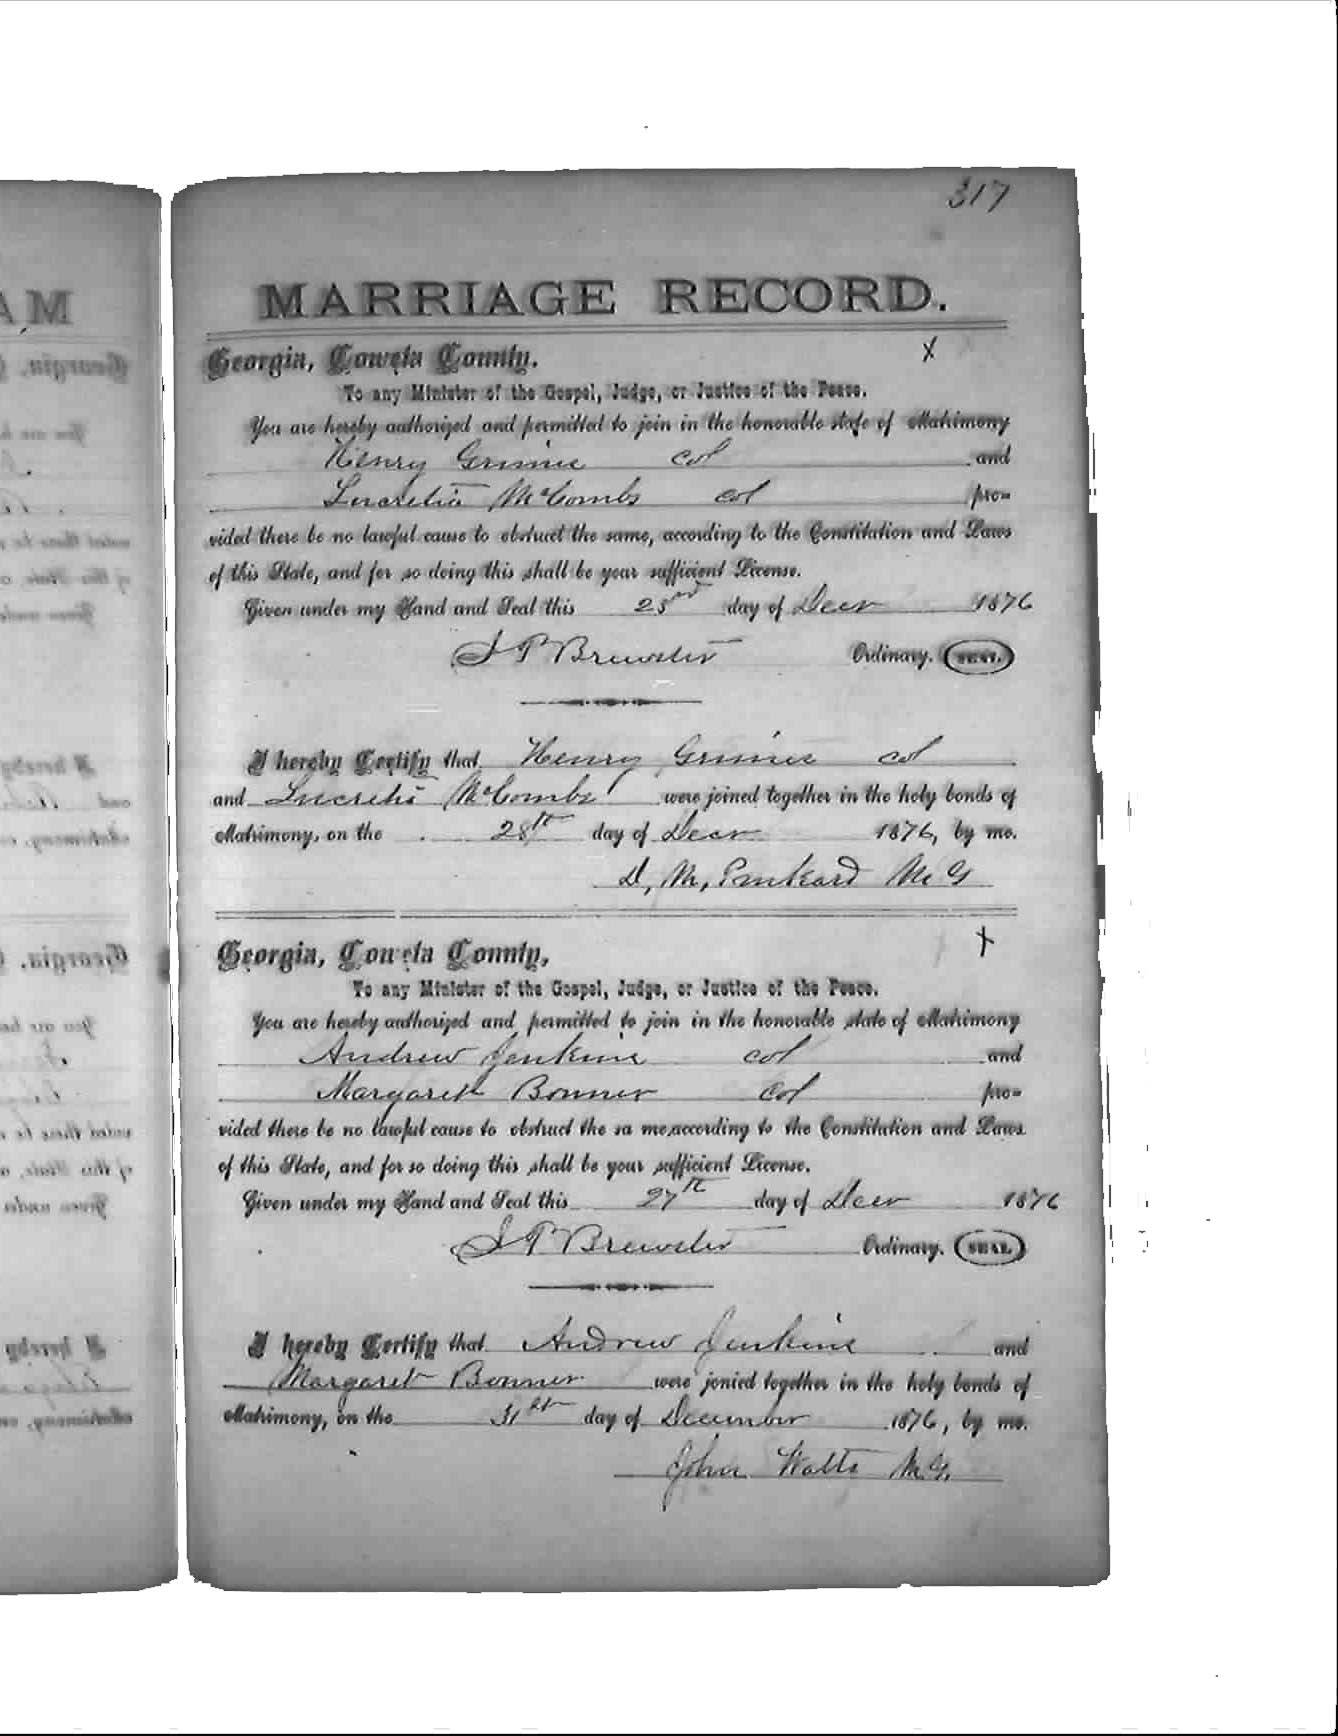 317
MARRIAGE RECORD.
Georgia, Coweta County. X
To any Minister of the Gospel, Judge, or Justice of the Peace.
You are hereby authorized and permitted to join in the honorable state of Matrimony
Henry Grimes col and
Lucretia McCombs col pro-
vided there be no lawful cause to obstruct the same, according to the Constitution and Laws
of this State, and for so doing this shall be your sufficient License.
Given under my Hand and Seal this day of Decr 1876
J P Brewster Ordinary. SEAL.
I hereby Certify that Henry Grimes col
and Lucretia McCombs were joined together in the holy bonds of
Matrimony, on the 28th day of Decr 1876, by me.
D, M, Pinkard M G
Georgia, Coweta County, X
To any Minister of the Gospel, Judge, or Justice of the Peace.
You are hereby authorized and permitted to join in the honorable state of Matrimony
Andrew Jenkins col and
Margaret Bonner Col pro-
vided there be no lawful cause to obstruct the sa me, according to the Constitution and Laws
of this State, and for so doing this shall be your sufficient License.
Given under my Hand and Seal this 27th day of Decr 1876
J P Brewster Ordinary. SEAL.
I hereby Certify that Andrew Jenkins and
Margaret Bonner were jonied together in the holy bonds of
Matrimony, on the 31st day of December 1876, by me.
John Watts M.G.